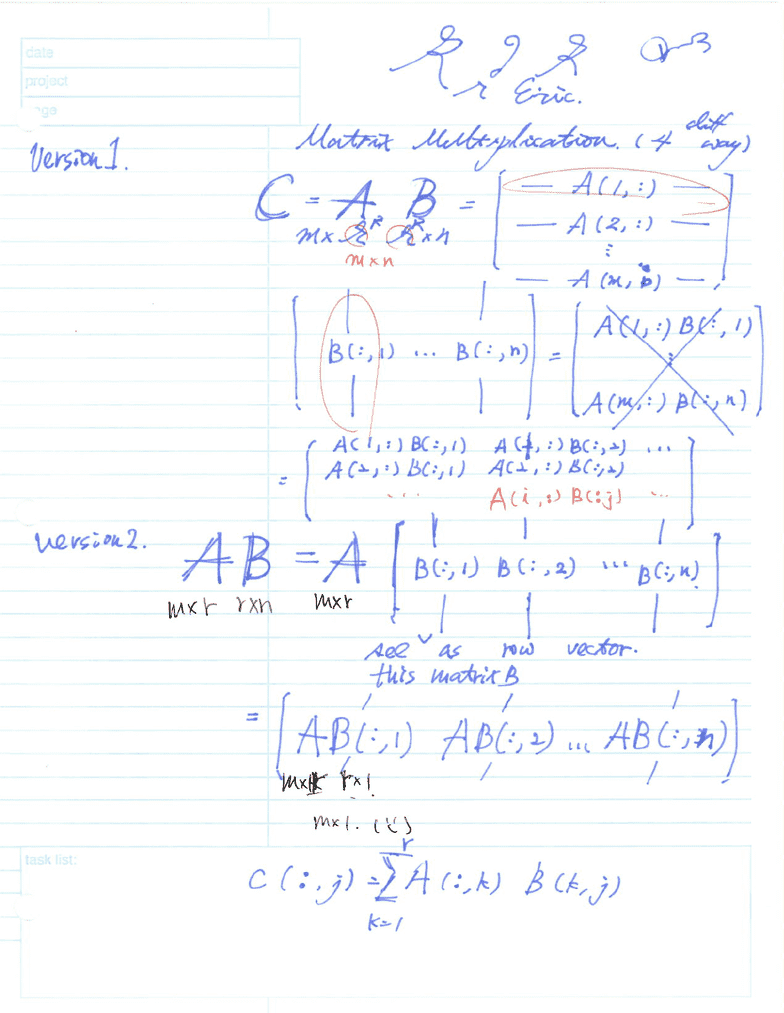 date
project
Eric.
Version 1.
Matrix Multiplication. (4 diff way)
C = A B = [ — A(1,:) —
m×r r×n
m×n
— A(2,:) —
⋮
— A(m,:) — ]
[ B(:,1) ... B(:,n) ] = [ A(1,:) B(:,1)
⋮
A(m,:) B(:,n) ]
= [ A(1,:) B(:,1) A(1,:) B(:,2) ...
A(2,:) B(:,1) A(2,:) B(:,2)
... A(i,:) B(:j) ... ]
Version 2.
AB = A [ B(:,1) B(:,2) ... B(:,n) ]
m×r r×n m×r
see ˅ as row vector.
this matrix B
= [ AB(:,1) AB(:,2) ... AB(:,n) ]
m×r r×1
m×1.
task list:
C(:,j) = ∑ A(:,k) B(k,j)
r
k=1